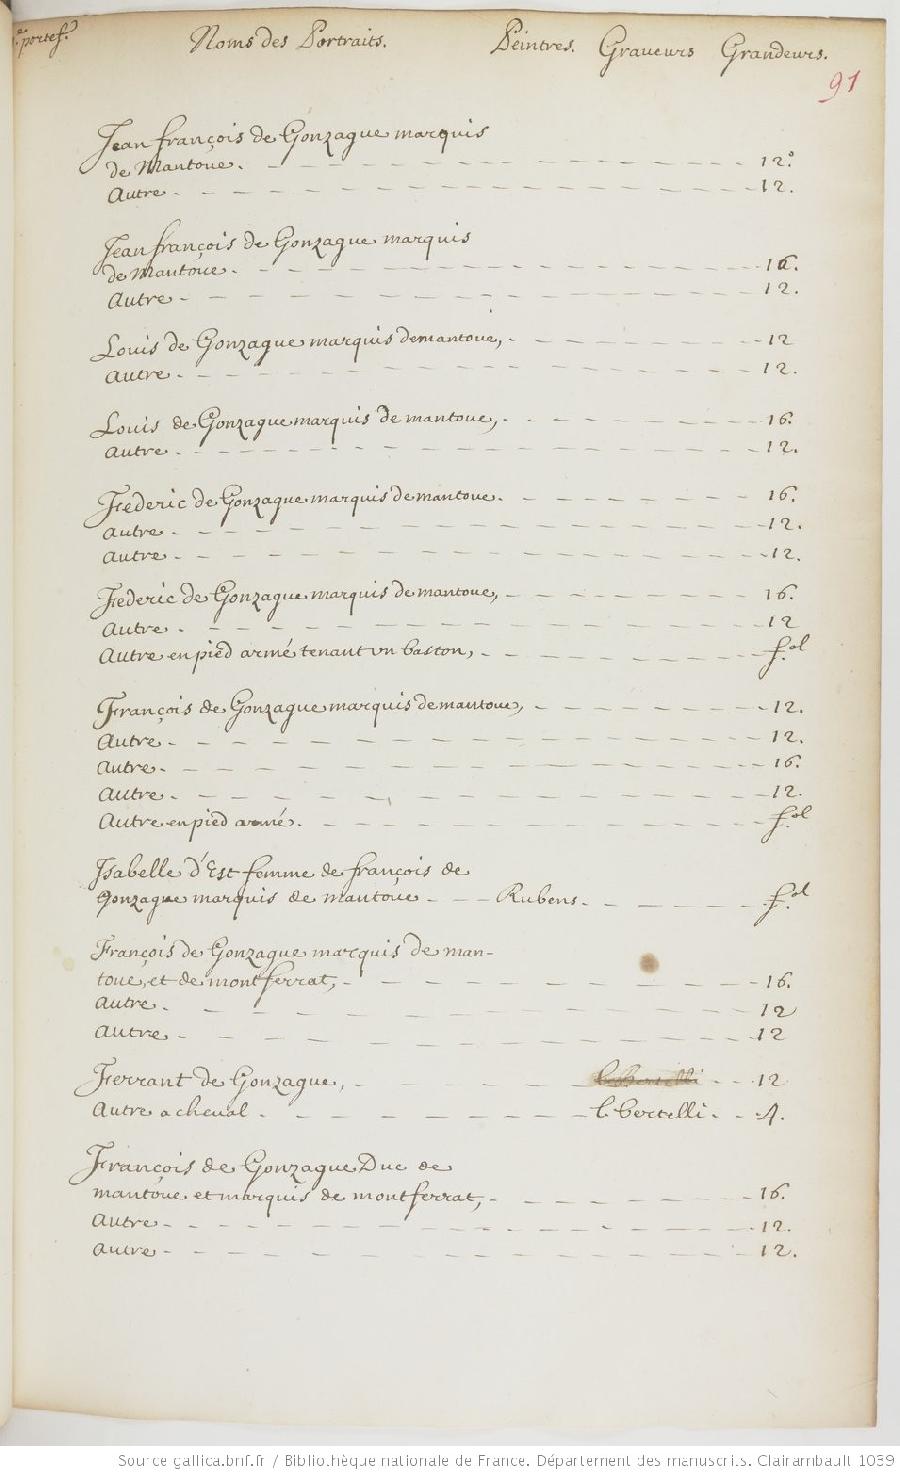 portef.
Noms des Portraits. Peintres. Graveurs Grandeurs.
91
Jean françois de Gonzague marquis
de Mantoue. 12.º
Autre. 12.
Jean françois de Gonzague marquis
de Mantoue. 16.
Autre 12.
Louis de Gonzague marquis de mantoue, 12
Autre. 12.
Louis de Gonzague marquis de mantoue, 16.
Autre. 12.
Féderic de Gonzague marquis de mantoue. 16.
Autre. 12.
Autre. 12.
Féderic de Gonzague marquis de mantoue, 16.
Autre. 12
Autre en pied armé tenant vn baston, f.ol
François de Gonzague marquis de mantoue, 12.
Autre. 12.
Autre. 16.
Autre. 12.
Autre en pied armé. f.ol
Isabelle d'Est femme de françois de
Gonzague marquis de mantoue Rubens. f.ol
François de Gonzague marquis de man-
toue, et de montferrat, 16.
Autre. 12
Autre 12
Ferrant de Gonzague, 12
Autre a cheval. bertelli. 4.
François de Gonzague Duc de
mantoue et marquis de montferrat, 16.
Autre 12.
Autre 12.
Source gallica.bnf.fr / Bibliothèque nationale de France. Département des manuscrits. Clairambault 1039